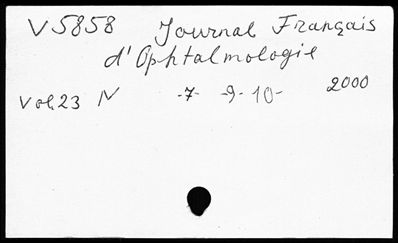 V5858 Journal Français
d'Ophtalmologie
Vol.23 N -7- -9- 10- 2000